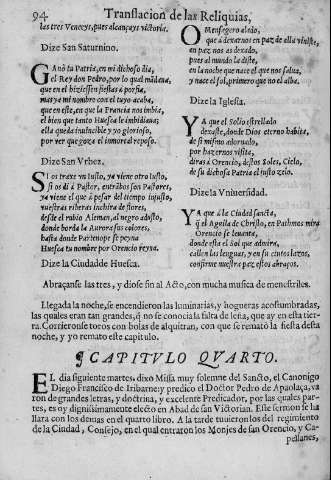 94 Translacion de las Reliquias,
las tres Venceys, pues alcançays victoria.
Dize San Saturnino.
GAnò tu Patria, en mi dichoso dia,
el Rey don Pedro, por lo qual mãdana,
que en el hiziessen fiestas à porfia,
mas ya mi nombre con el tuyo acaba,
que en este, en que la Francia nos imbia,
el bien que tanto Huesca le imbidiana;
ella queda inuincible y yo glorioso,
por ver que goza el inmortal reposo.
Dize San Vrbez.
SI os traxe vn Iusto, ya viene otro Iusto,
si os di à Pastor, entràbos son Pastores,
ya viene el que à pesar del tiempo injusto,
vuestras riberas inchira de flores,
desde el rubio Aleman, al negro adusto,
donde borda la Aurora sus colores,
hasta donde Partenope se peyna
Huesca tu nombre por Orencio reyna.
Dize la Ciudad de Huesca.
O Mensagero alado,
que à dexarnos en paz de ella viniste,
en paz nos as dexado,
pues al mundo la diste,
en la noche que nace el que nos salua,
y nace el sol, primero que no el alba.
Dize la Iglesia.
YA que el Solio estrellado
dexaste, donde Dios eterno habita,
de si mismo adornado,
por hazernos visita,
diras à Orencio, destos Soles, Cielo,
de su dichosa Patria el justo zelo.
Dize la Vniuersidad.
YA que à la Ciudad sancta,
q̃ el Aguila de Christo, en Pathmos mira
Orencio se leuanta,
donde esta el Sol que admira,
callen las lenguas, y en su cintos lazos,
confirme nuestra paz estos abraços.
Abraçanse las tres, y diose fin al Acto, con mucha musica de menestriles.
Llegada la noche, se encendieron las luminarias, y hogueras acostumbradas,
las quales eran tan grandes, q̃ no se conocia la falta de leña, que ay en esta tierra.
Corrieronse toros con bolas de alquitran, con que se remató la fiesta desta
noche, y yo remato este capitulo.
¶ CAPITVLO QVARTO.
EL dia siguiente martes, dixo Missa muy solemne del Sancto, el Canonigo
Diego Francisco de Iribarne: y predico el Doctor Pedro de Apaolaça, va
ron de grandes letras, y doctrina, y excelente Predicador, por las quales par-
tes, es oy dignissimamente electo en Abad de san Victorian. Este sermon se ha
llara con los demas en el quarto libro. A la tarde tuuieron los del regimiento
de la Ciudad, Consejo, en el qual entraron los Monjes de san Orencio, y Ca-
pellanes,